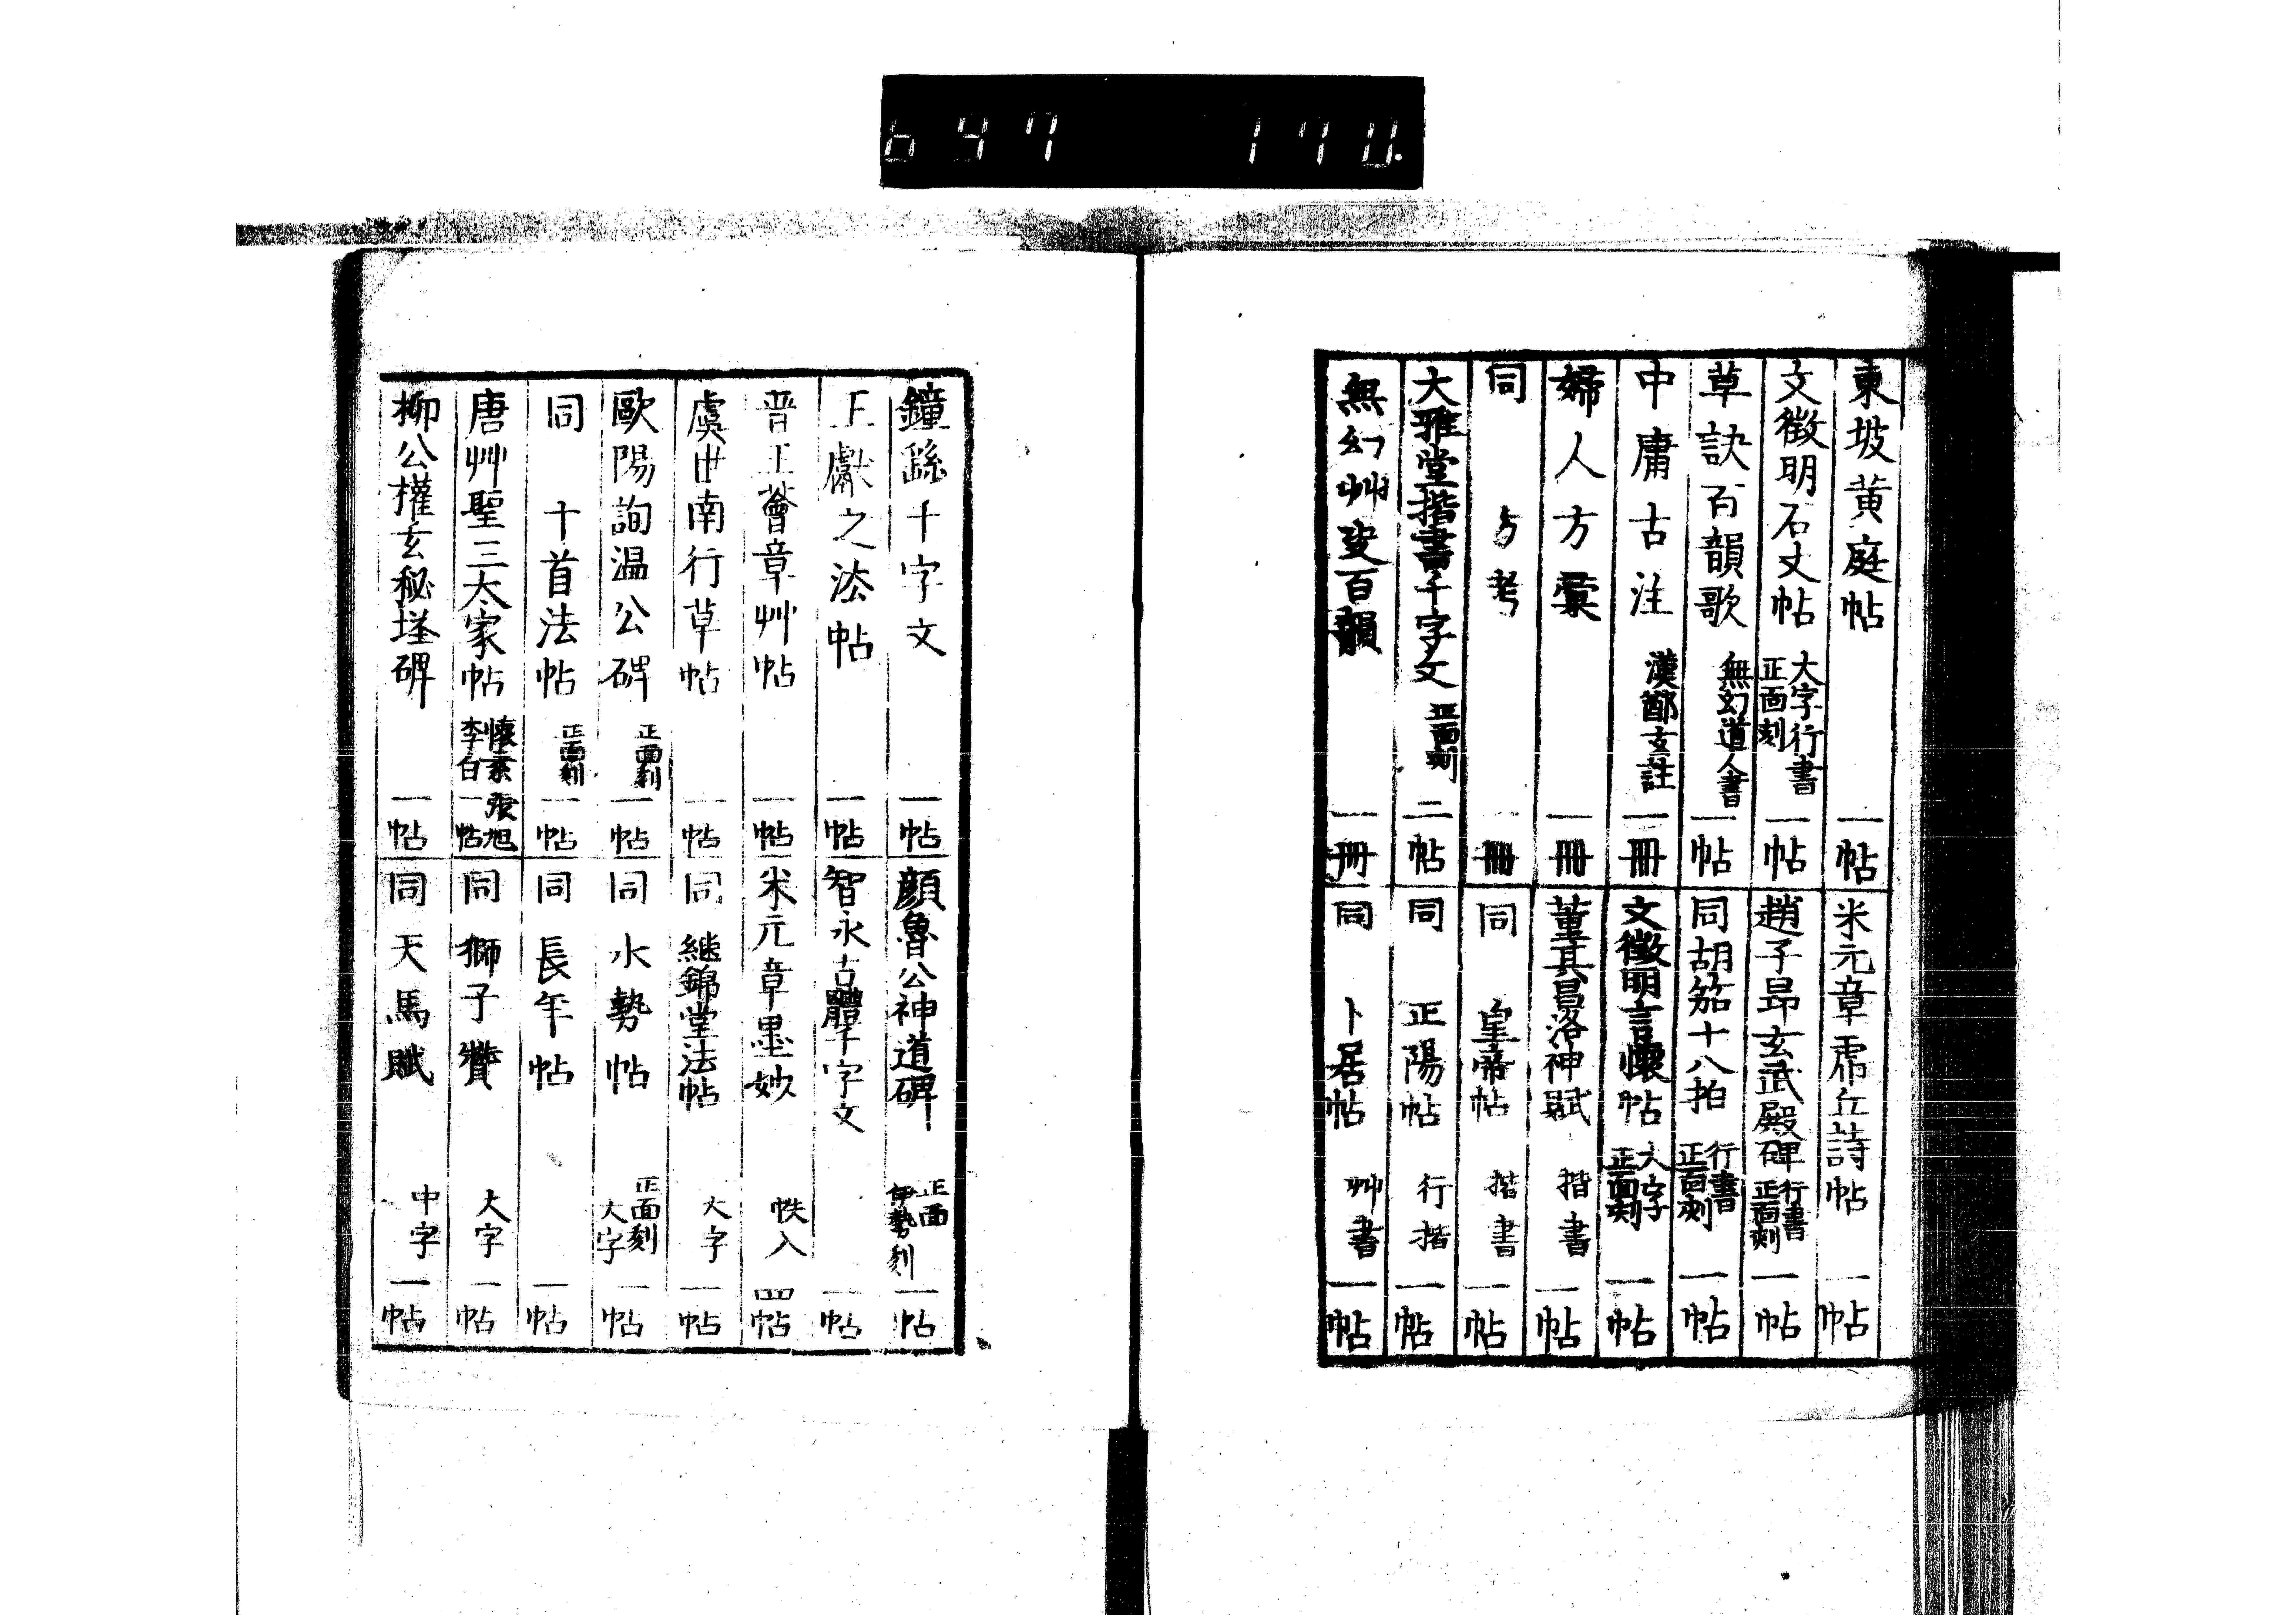 647 170.
東坡黄庭帖 一帖
文徴明石丈帖 大字行書 正面刻 一帖
草訣百韻歌 無幻道人書 一帖
中庸古注 漢鄭玄註 一冊
婦人方彙 一冊
同 方考 一冊
大雅堂楷書千字文 正面刻 二帖
無幻艸 百韻 一冊
米元章虎丘詩帖 一帖
趙子昂玄武殿碑 行書 正面刻 一帖
同胡笳十八拍 行書 正面刻 一帖
文徴明言懷帖 大字 正面刻 一帖
董其昌洛神賦 楷書 一帖
同 皇帝帖 楷書 一帖
同 正陽帖 行楷 一帖
同 卜居帖 艸書 一帖
鐘繇千字文 一帖
王獻之法帖 一帖
晋王薈章艸帖 一帖
虞世南行草帖 一帖
歐陽詢温公碑 正面刻 一帖
同 十首法帖 正面刻 一帖
唐艸聖三大家帖 懐素 張旭 李白 一帖
柳公權玄秘塔碑 一帖
顔魯公神道碑 正面 伊勢刻 一帖
智永古體千字文 一帖
米元章墨妙 帙入 四帖
同 継錦堂法帖 大字 一帖
同 水勢帖 正面刻 大字 一帖
同 長年帖 一帖
同 獅子贊 大字 一帖
同 天馬賦 中字 一帖